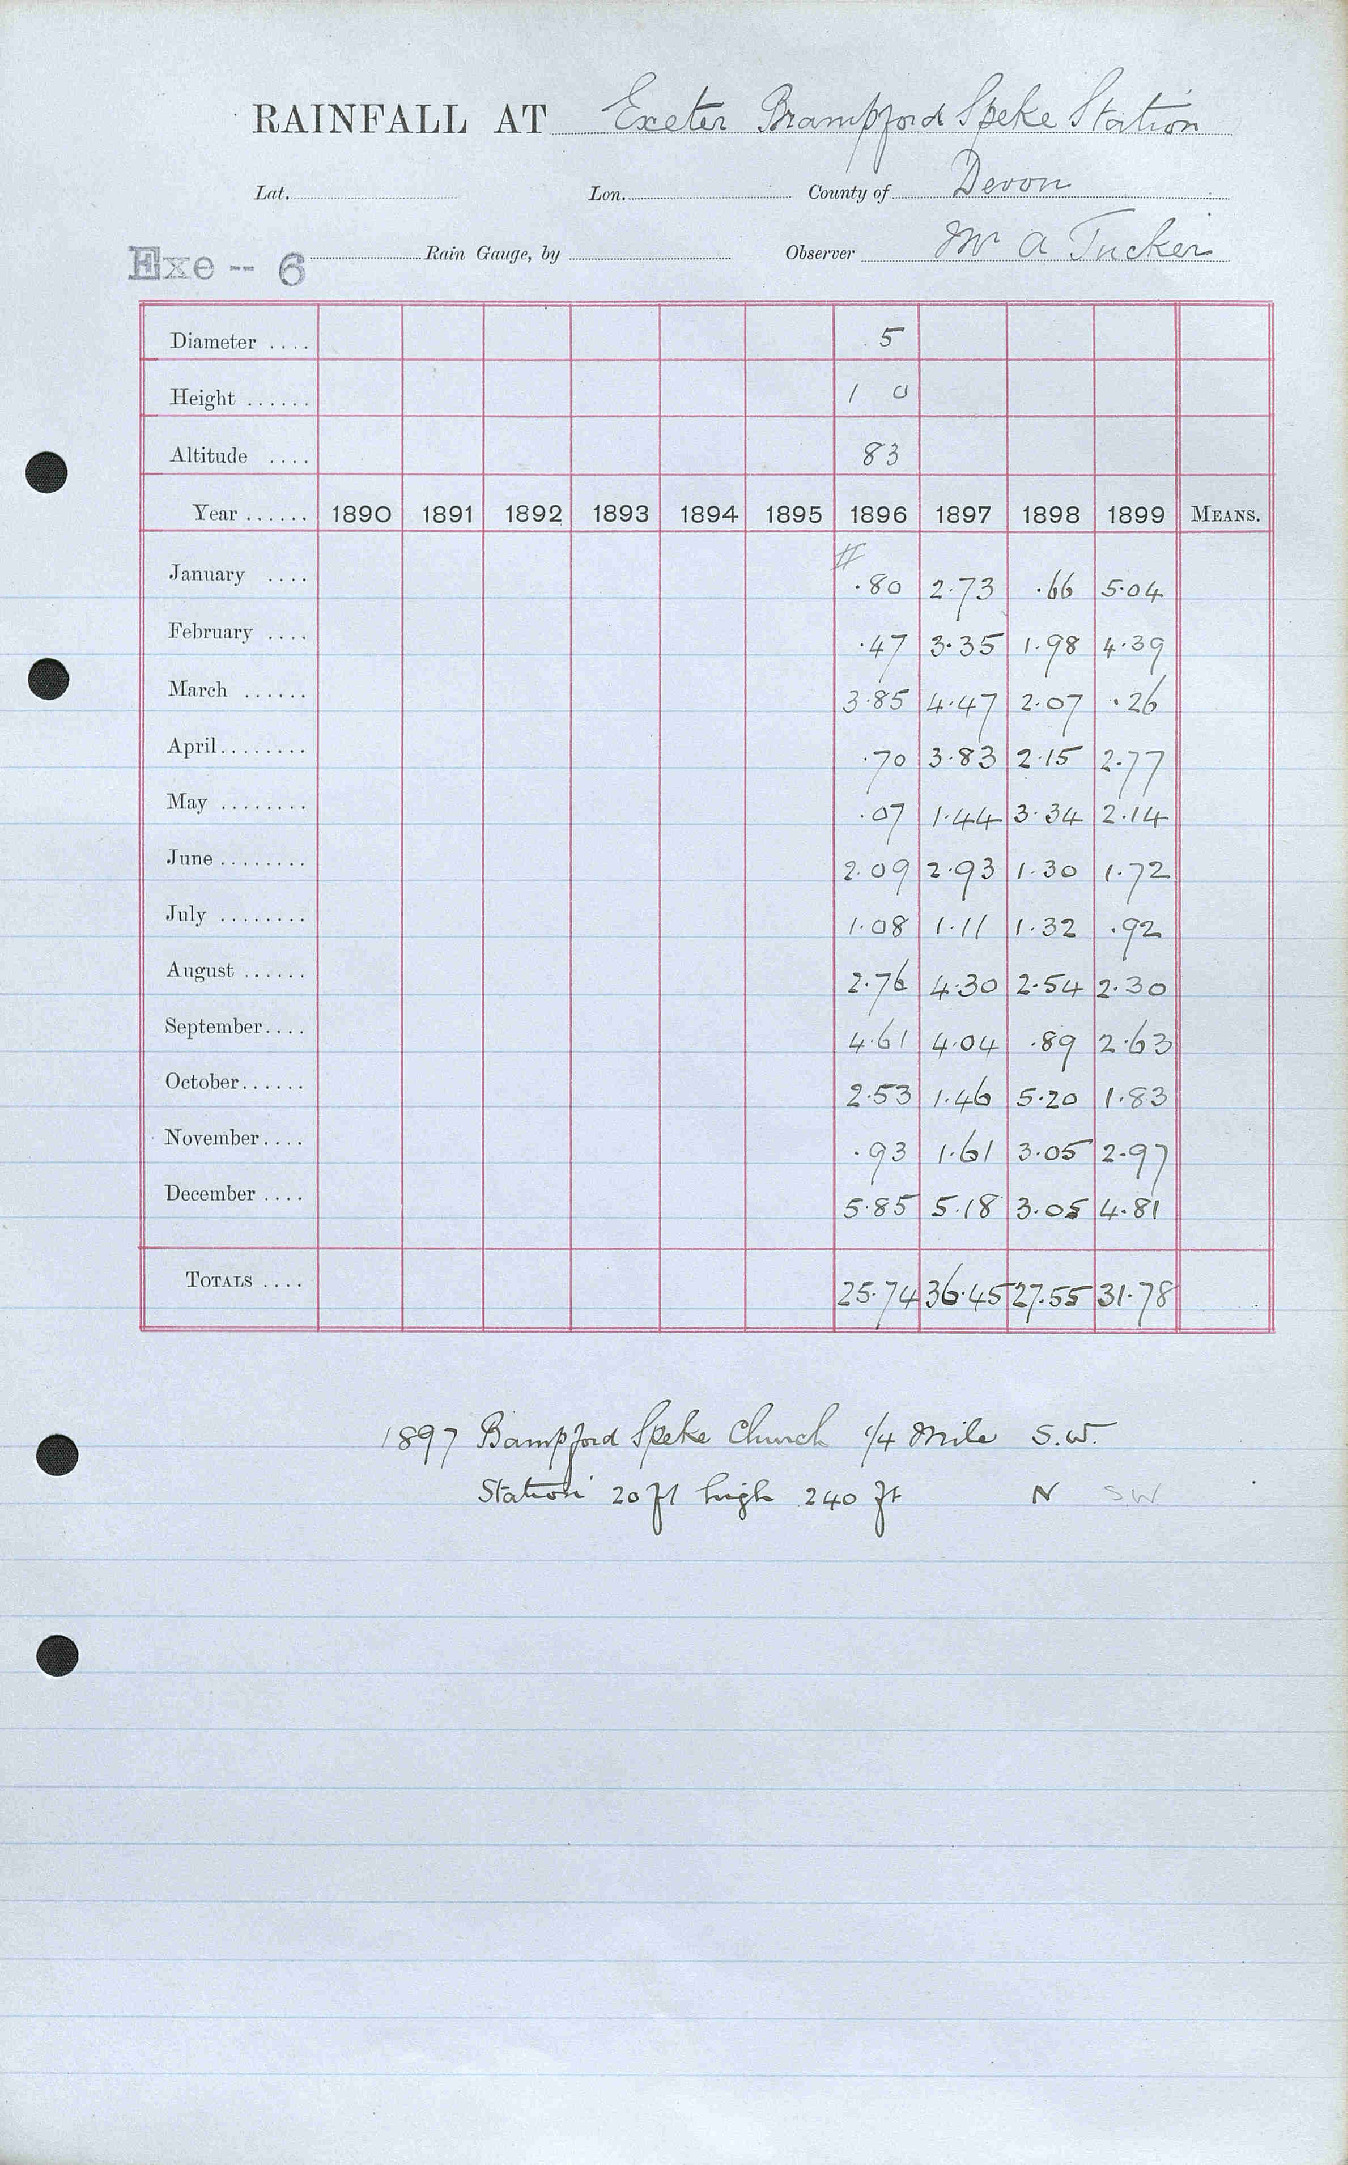 RAINFALL AT Exeter Brampford Speke Station
Lat. Lon. County of Devon
Exe -- 6 Rain Gauge, by Observer Mr A Tucker
Diameter .... 5
Height ...... 1 0
Altitude .... 83
Year ...... 1890 1891 1892 1893 1894 1895 1896 1897 1898 1899 MEANS.
#
January .... .80 2.73 .66 5.04
February .... .47 3.35 1.98 4.39
March ...... 3.85 4.47 2.07 .26
April........ .70 3.83 2.15 2.77
May ........ .07 1.44 3.34 2.14
June ........ 2.09 2.93 1.30 1.72
July ........ 1.08 1.11 1.32 .92
August ...... 2.76 4.30 2.54 2.30
September.... 4.61 4.04 .89 2.63
October...... 2.53 1.46 5.20 1.83
November.... .93 1.61 3.05 2.97
December .... 5.85 5.18 3.05 4.81
TOTALS .... 25.74 36.45 27.55 31.78
1897 Bampford Speke Church 1/4 Mile S.W.
Station 20 ft high 240 ft N SW